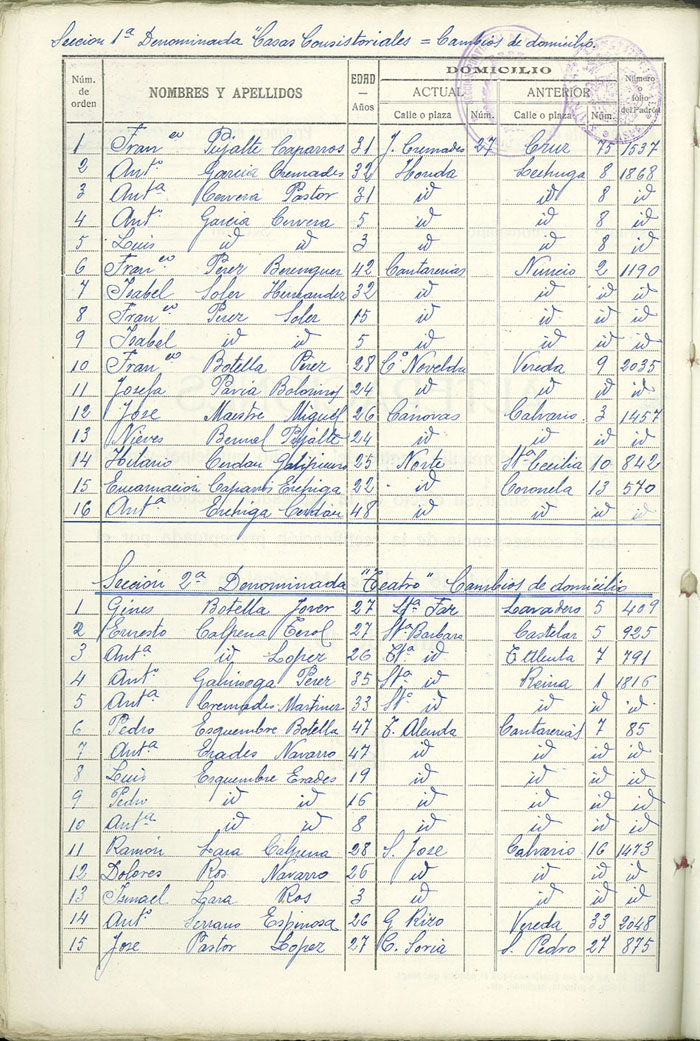 Sección 1ª Denominada "Casas Consistoriales = Cambios de domicilio.
Núm. de orden NOMBRES Y APELLIDOS EDAD — Años DOMICILIO ACTUAL Calle o plaza Núm. ANTERIOR Calle o plaza Núm. Número o folio del Padrón
1 Fran.co Pujalte Caparros 31 J. Cremades 27 Cruz 75 1537
2 Antº Garcia Cremades 32 Honda Lechuga 8 1868
3 Antª Cervera Pastor 31 id id 8 id
4 Antº Garcia Cervera 5 id id 8 id
5 Luis id id 3 id id 8 id
6 Fran.co Perez Berenguer 42 Cantarerias Nuncio 2 1190
7 Isabel Soler Hernandez 32 id id id id
8 Fran.co Perez Soler 15 id id id id
9 Isabel id id 5 id id id id
10 Fran.co Botella Perez 28 Cº Novelda Vereda 9 2035
11 Josefa Pavia 24 id id id id
12 Jose Maestre Miguel 26 Cánovas Calvario 3 1457
13 Nieves Bernal Pujalte 24 id id id id
14 Hilario Cerdán 25 Norte Stª Cecilia 10 842
15 Encarnacion Caparros 22 id Coronela 13 570
16 Antª Cerdán 48 id id id id
Sección 2ª Denominada "Teatro" Cambios de domicilio
1 Gines Botella Jover 27 Stª Faz Lavadero 5 409
2 Ernesto Calpena Terol 27 Stª Barbara Castelar 5 925
3 Antª id Lopez 26 Stª id T Alenda 7 791
4 Antº Galinsoga Perez 35 Stª id Reina 1 1816
5 Antª Cremades Martinez 33 Stª id id id id
6 Pedro Esquembre Botella 47 T. Alenda Cantarerias 7 85
7 Antª Erades Navarro 47 id id id id
8 Luis Esquembre Erades 19 id id id id
9 Pedro id id 16 id id id id
10 Antª id id 8 id id id id
11 Ramón Lara Calpena 28 S. Jose Calvario 16 1473
12 Dolores Ros Navarro 26 id id id id
13 Ismael Lara Ros 3 id id id id
14 Antº Serrano Espinosa 26 G Rizo Vereda 33 2048
15 Jose Pastor Lopez 27 C. Soria S. Pedro 27 875